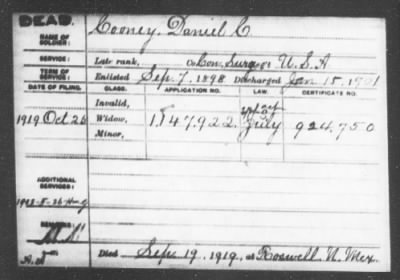 DEAD.
NAME OF SOLDIER: Cooney, Daniel C.
SERVICE: Late rank, Co. Con. Surg. U.S.A
TERM OF SERVICE: Enlisted Sep. 7, 1898 Discharged Jan 15, 1901
DATE OF FILING. CLASS. APPLICATION NO. LAW. CERTIFICATE NO.
Invalid,
1919 Oct 26 Widow, 1,147,922 July 924,750
Minor,
ADDITIONAL SERVICES:
REMARKS:
Died Sep. 19, 1919, at Roswell, N. Mex.